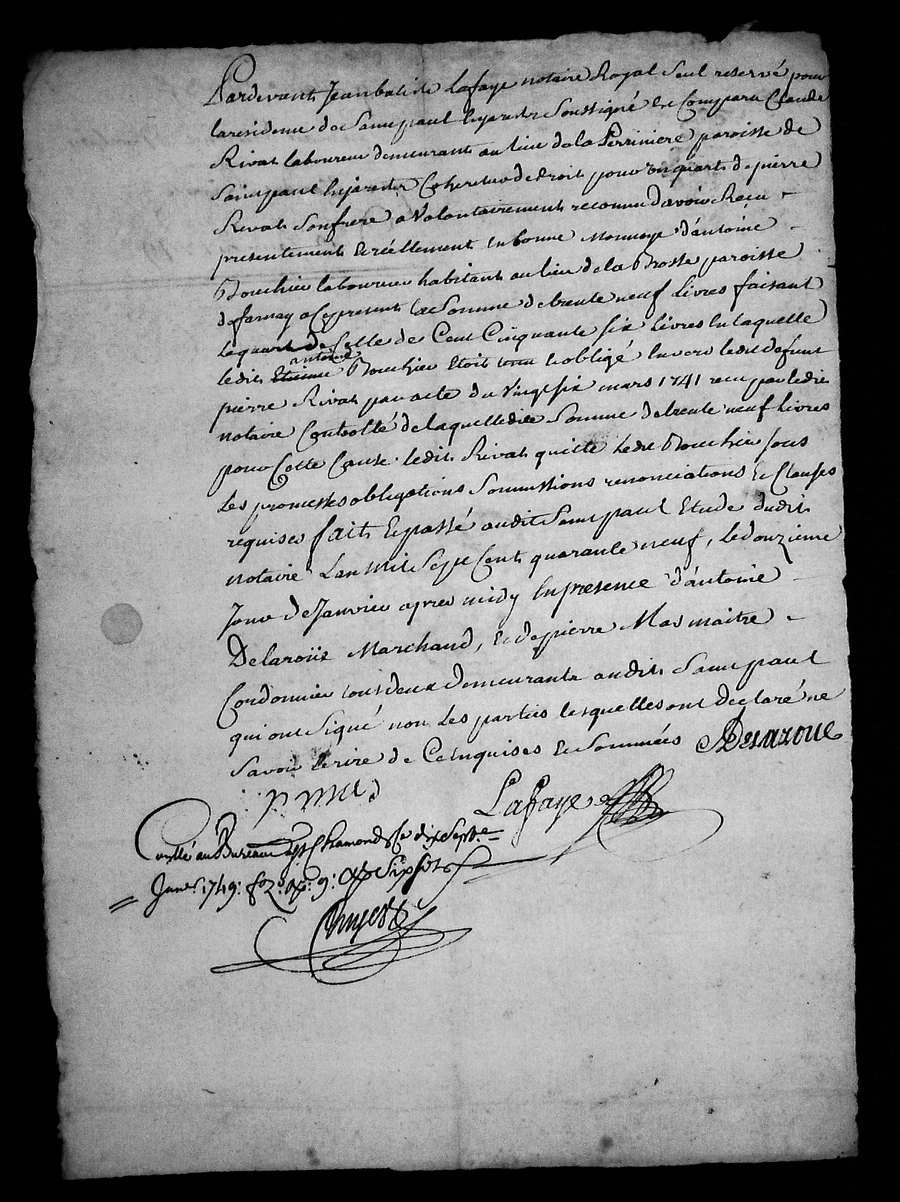 Pardevant Jean batiste Lafaye notaire Royal Seul reservé pour
la residence de Saint paul En jarretz Soussigné Et Comparu Claude
Rivat laboureur demeurant au lieu de la Perriniere paroisse de
Saint paul En jaretz Coheritier de droit pour un quart de pierre
Rivat Son frere a Volontairement reconnu d'avoir Receu
presentement Et réellement En bonne Monnoye d'antoine
Bouchier laboureur habitant au lieu de la Brosse paroisse
de farnay a Ce present la Somme de trente neuf Livres faisant
le quart de Celle de Cent Cinquante Six Livres En laquelle
antoine
ledit Etienne Bouchier Etoit tenu Et obligé Envers ledit defunt
pierre Rivat par acte du Vingt Six mars 1741 receu par ledit
notaire Controllé de laquelle dite Somme de trente neuf Livres
pour Cette Cause ledit Rivat quitte ledit Bouchier Sous
Les promesses obligations Soumissions renonciations Et Clauses
requises fait Et passé audit Saint paul Etude dudit
notaire L'an Mil Sept Cent quarante neuf, le douzieme
Jour de Janvier apres midy En presence d'antoine
Delaroüe Marchand, Et de pierre Mas maitre
Cordonnier tous deux demeurants audit Saint paul
qui ont Signé non Les parties lesquelles ont declaré ne
Savoir Ecrire de Ce Enquises Et Sommées Delaroue
p. mas
Lafaye
Conllé au Bureau de St Chamond le dix Sept.e
Janer. 1749: fo 2: 9: Six sols